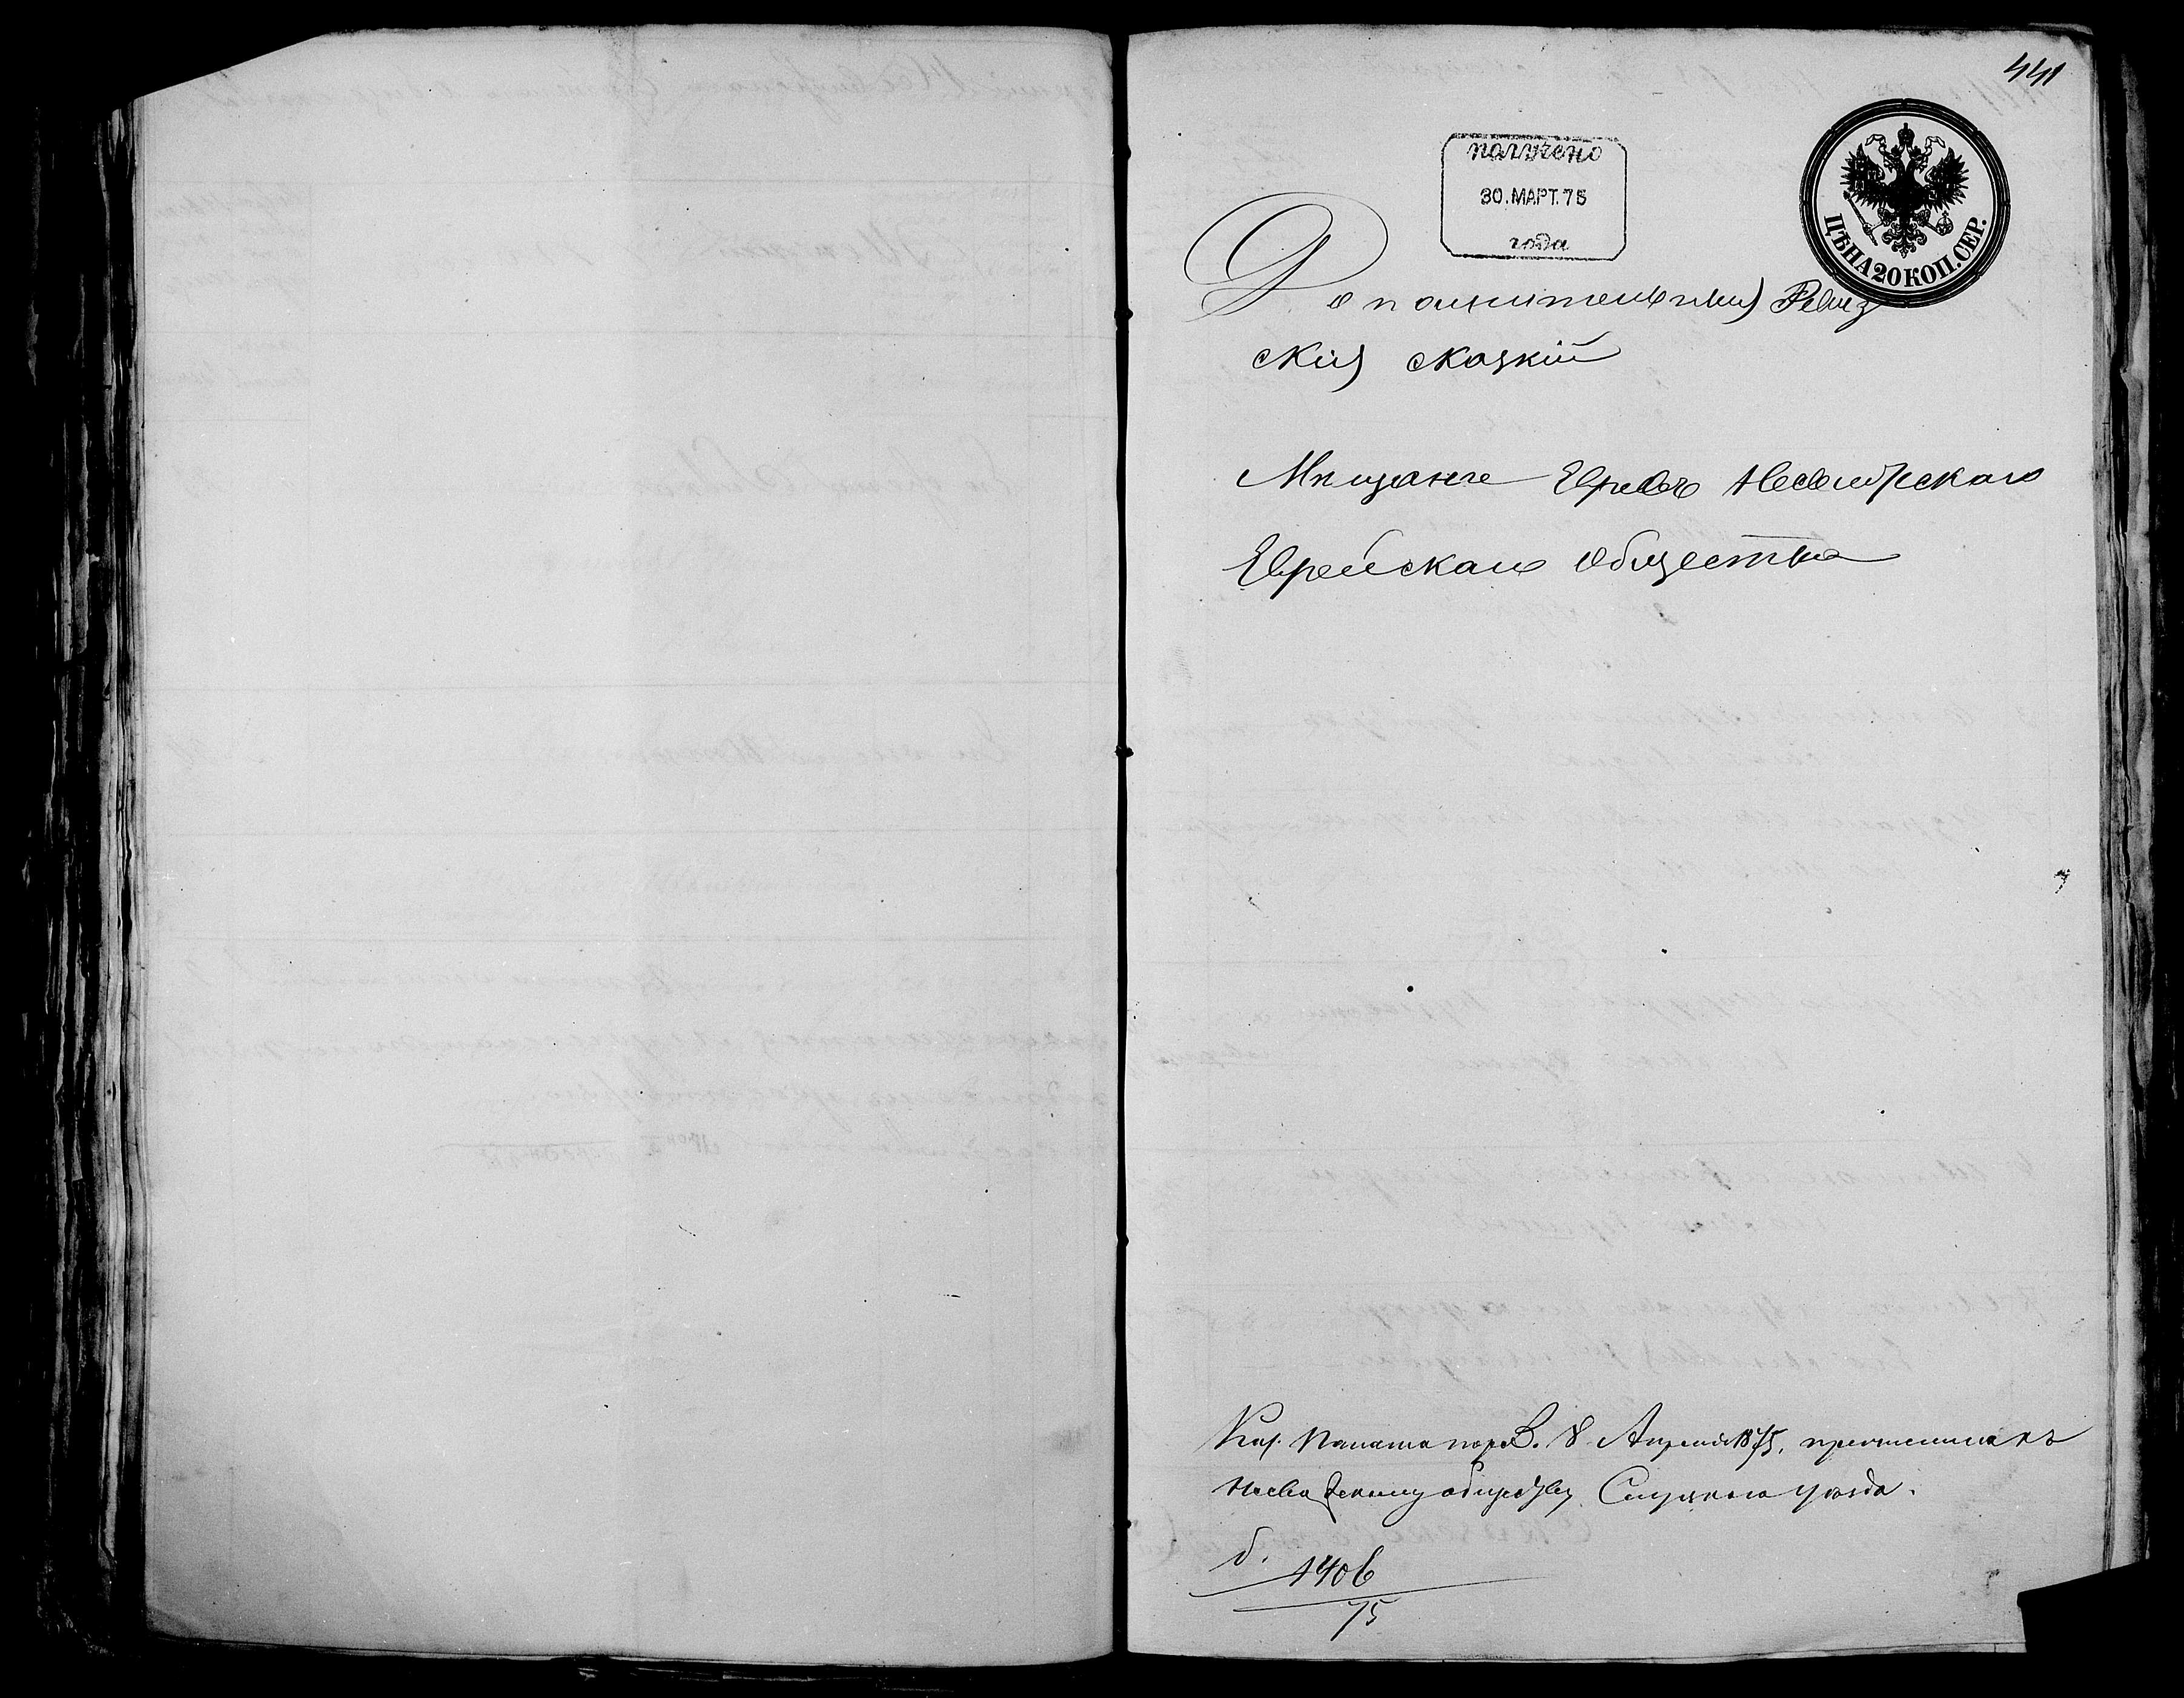 441
получено
30.МАРТ.75
года
ЦѢНА 20 КОП. СЕР.
Дополнительныя Ревиз
скія сказкій
Мещане Евреевъ Несвижскаго
Еврейскаго Общества
Каз. Палата 8 Апреля 1875. къ
Несвижскому обществу Слуцкаго уѣзда.
д. 1406
75